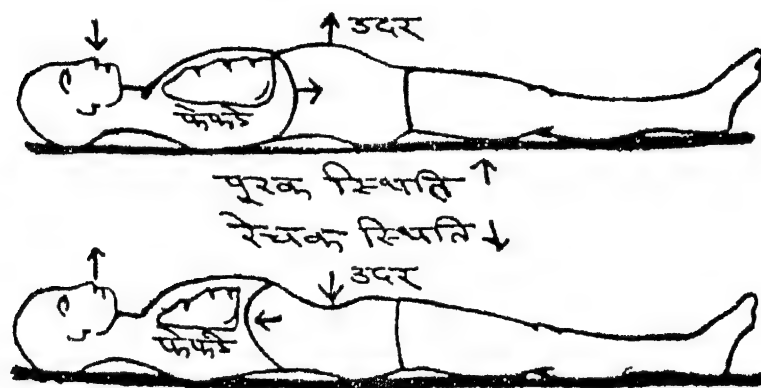 उदर
फेफडे
पूरक स्थिति
रेचक स्थिति
उदर
फेफडे